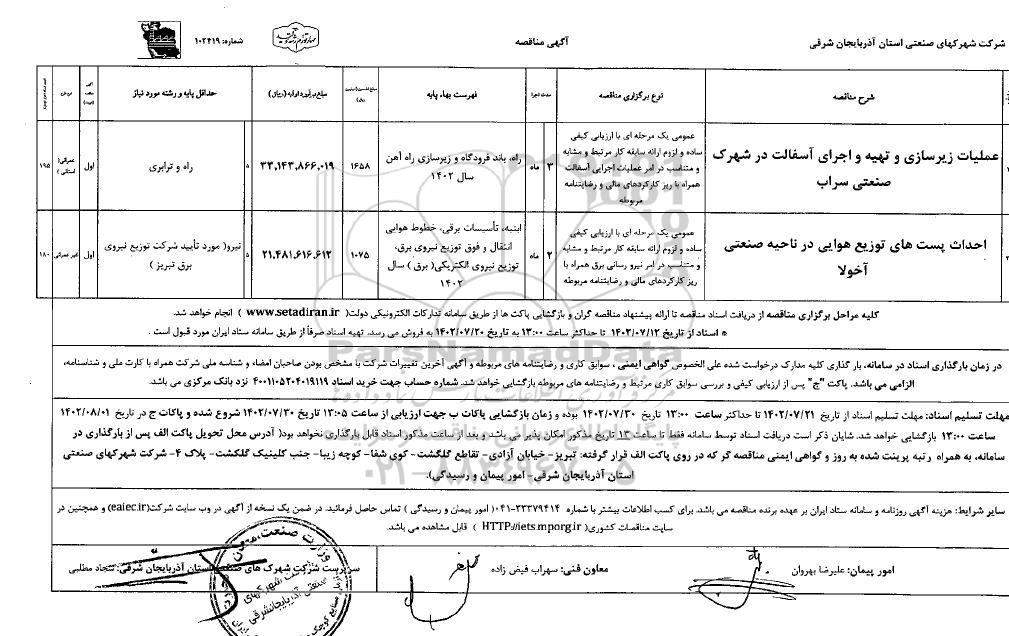 شرکت شهرکهای صنعتی استان آذربایجان شرقی
آگهی مناقصه
شماره: ۱۰۲۴۱۹
شرح مناقصه
نوع برگزاری مناقصه
مدت اجرا
فهرست بهاء پایه
مبلغ برآورد اولیه (ریال)
حداقل پایه و رشته مورد نیاز
عملیات زیرسازی و تهیه و اجرای آسفالت در شهرک
صنعتی سراب
عمومی یک مرحله ای با ارزیابی کیفی
ساده و لزوم ارائه سابقه کار مرتبط و مشابه
و متناسب در امر عملیات اجرایی آسفالت
همراه با ریز کارکردهای مالی و رضایتنامه
مربوطه
۳ ماه
راه، باند فرودگاه و زیرسازی راه آهن
سال ۱۴۰۲
۱۶۵۸
۳۳,۱۴۳,۸۶۶,۰۱۹
۵
راه و ترابری
اول
عمرانی( استانی )
۱۹۵
احداث پست های توزیع هوایی در ناحیه صنعتی
آخولا
عمومی یک مرحله ای با ارزیابی کیفی
ساده و لزوم ارائه سابقه کار مرتبط و مشابه
و متناسب در امر نیرو رسانی برق همراه با
ریز کارکردهای مالی و رضایتنامه مربوطه
۲ ماه
ابنیه، تأسیسات برقی، خطوط هوایی
انتقال و فوق توزیع نیروی برق،
توزیع نیروی الکتریکی( برق ) سال
۱۴۰۲
۱۰۷۵
۲۱,۴۸۱,۶۱۶,۶۱۲
۵
نیرو( مورد تأیید شرکت توزیع نیروی
برق تبریز )
اول
غیر عمرانی
۱۸۰
کلیه مراحل برگزاری مناقصه از دریافت اسناد مناقصه تا ارائه پیشنهاد مناقصه گران و بازگشایی پاکت ها از طریق سامانه تدارکات الکترونیکی دولت( www.setadiran.ir ) انجام خواهد شد.
* اسناد از تاریخ ۱۴۰۲/۰۷/۱۲ تا حداکثر ساعت ۱۳:۰۰ به تاریخ ۱۴۰۲/۰۷/۲۰ به فروش می رسد. تهیه اسناد صرفاً از طریق سامانه ستاد ایران مورد قبول است .
در زمان بارگذاری اسناد در سامانه، بار گذاری کلیه مدارک درخواست شده علی الخصوص گواهی ایمنی ، سوابق کاری و رضایتنامه های مربوطه و آگهی آخرین تغییرات شرکت با مشخص بودن صاحبان امضاء و شناسه ملی شرکت همراه با کارت ملی و شناسنامه،
الزامی می باشد. پاکت "ج" پس از ارزیابی کیفی و بررسی سوابق کاری مرتبط و رضایتنامه های مربوطه بازگشایی خواهد شد. شماره حساب جهت خرید اسناد ۴۰۰۱۱۰۵۲۰۴۰۱۹۱۱۹ نزد بانک مرکزی می باشد.
مهلت تسلیم اسناد: مهلت تسلیم اسناد از تاریخ ۱۴۰۲/۰۷/۲۱ تا حداکثر ساعت ۱۳:۰۰ تاریخ ۱۴۰۲/۰۷/۳۰ بوده و زمان بازگشایی پاکات ب جهت ارزیابی از ساعت ۱۳:۰۵ تاریخ ۱۴۰۲/۰۷/۳۰ شروع شده و پاکات ج در تاریخ ۱۴۰۲/۰۸/۰۱
ساعت ۱۳:۰۰ بازگشایی خواهد شد. شایان ذکر است دریافت اسناد توسط سامانه فقط تا ساعت ۱۳ تاریخ مذکور امکان پذیر می باشد و بعد از ساعت مذکور اسناد قابل بارگذاری نخواهد بود( آدرس محل تحویل پاکت الف پس از بارگذاری در
سامانه، به همراه رتبه پرینت شده به روز و گواهی ایمنی مناقصه گر که در روی پاکت الف قرار گرفته: تبریز- خیابان آزادی- تقاطع گلگشت- کوی شفا- کوچه زیبا- جنب کلینیک گلگشت- پلاک ۴- شرکت شهرکهای صنعتی
استان آذربایجان شرقی- امور پیمان و رسیدگی).
سایر شرایط: هزینه آگهی روزنامه و سامانه ستاد ایران بر عهده برنده مناقصه می باشد. برای کسب اطلاعات بیشتر با شماره ۳۳۳۷۹۴۱۴-۰۴۱( امور پیمان و رسیدگی ) تماس حاصل فرمائید. در ضمن یک نسخه از آگهی در وب سایت شرکت(eaiec.ir) و همچنین در
سایت مناقصات کشوری( HTTP://iets.mporg.ir ) قابل مشاهده می باشد.
امور پیمان: علیرضا بهروان
معاون فنی: سهراب فیض زاده
سرپرست شرکت شهرک های صنعتی استان آذربایجان شرقی: سجاد مطلبی
ParsNamadData